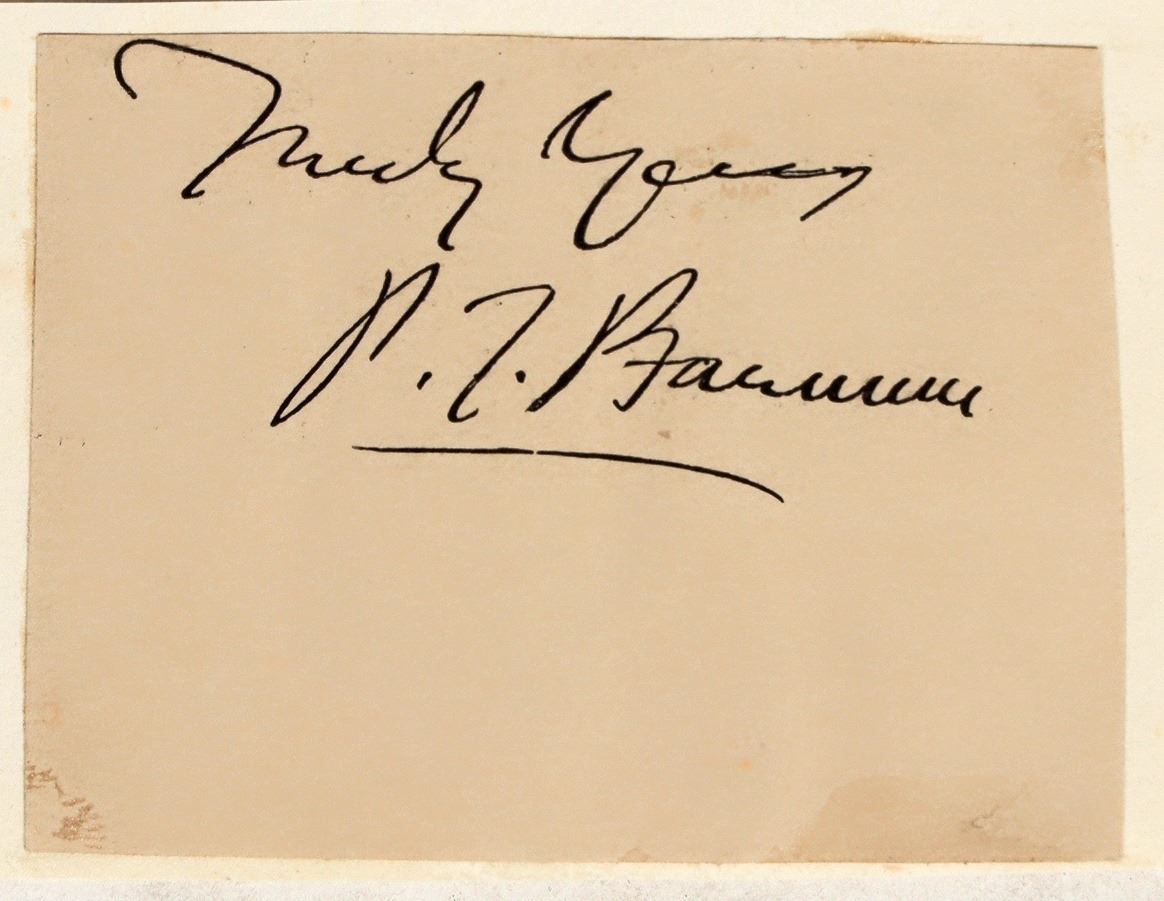 Truly Yours
P. T. Barnum